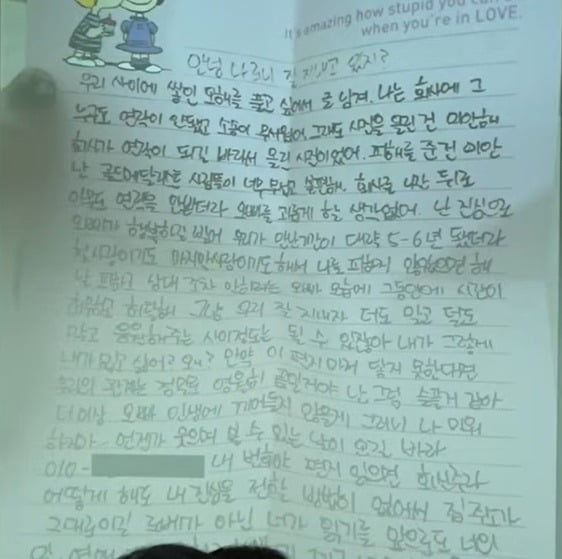 It's amazing how stupid you
when you're in LOVE.
안녕 나르니 잘 지내고 있지?
우리 사이에 쌓인 오해를 풀고 싶어서 글 남겨. 나는 회사에 그
누구도 연락이 안됐고 소용이 없어 그래도 사진을 올린 건 미안해
회사가 연락이 되길 바라서 올린 사진이었어. 피해를 준건 미안
난 골드메달리스트 사람들이 너무 무섭고 불편해. 회사를 나간 뒤로
아무도 연락을 안받더라 오빠를 괴롭게 할 생각없어. 난 진심으로
오빠가 행복하길 빌어 우리가 만난기간이 대략 5-6년 됐더라
첫사랑이기도 마지막사랑이기도 해서 나를 피하지 않았으면 해
난 상대 조차 안하려는 오빠 모습에 그동안에 시간이
허무하고 허탈해 그냥 우리 잘 지내자 더도 말고 덜도
말고 응원해주는 사이정도는 될 수 있잖아 내가 그렇게
내가 밉고 싫어? 왜? 만약 이 편지마저 닿지 못한다면
우리의 관계는 정말 영원히 끝일거야 난 그럼 슬플거 같아
더이상 오빠 인생에 끼어들지 않을게 그러니 나 미워
하지마. 언젠가 웃으며 볼 수 있는 날이 오길 바라
010- 내 번호야 편지 읽으면 회신주라
어떻게 해도 내 진심을 전할 방법이 없어서 집 주소가
그대로이길 아닌 너가 읽기를 앞으로도 너의